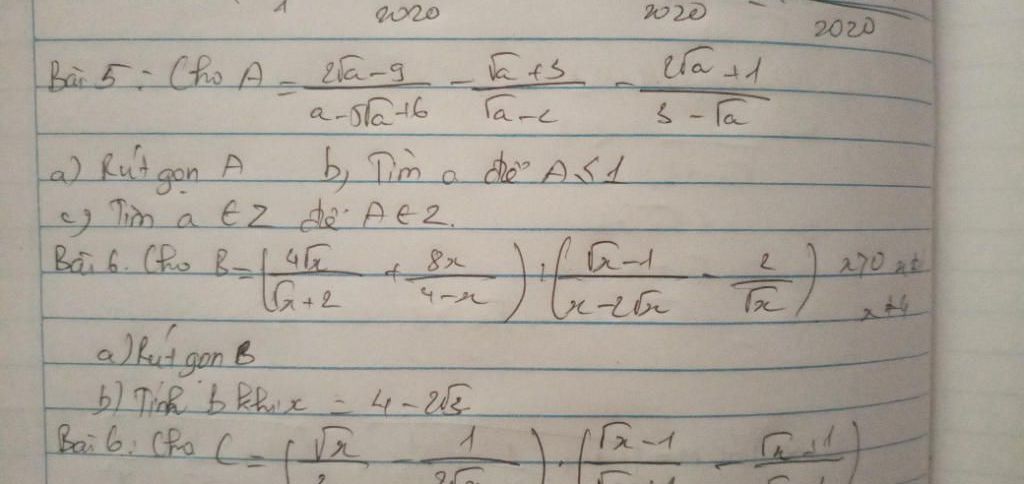 1 2020 2020 = 2020
Bài 5 : Cho A = (2√a - 9)/(a - 5√a + 6) - (√a + 3)/(√a - 2) - (2√a + 1)/(3 - √a)
a) Rút gọn A b, Tìm a để A < 1
c, Tìm a ∈ Z để A ∈ Z.
Bài 6. Cho B = ( 4√x/(√x + 2) + 8x/(4 - x) ) : ( (√x - 1)/(x - 2√x) - 2/√x ) x > 0
x ≠ 4
a) Rút gọn B
b) Tính b khi x = 4 - 2√3
Bài 6 : Cho C = ( √x/2 - 1/2√x ) . ( √x - 1 - √x + 1 )